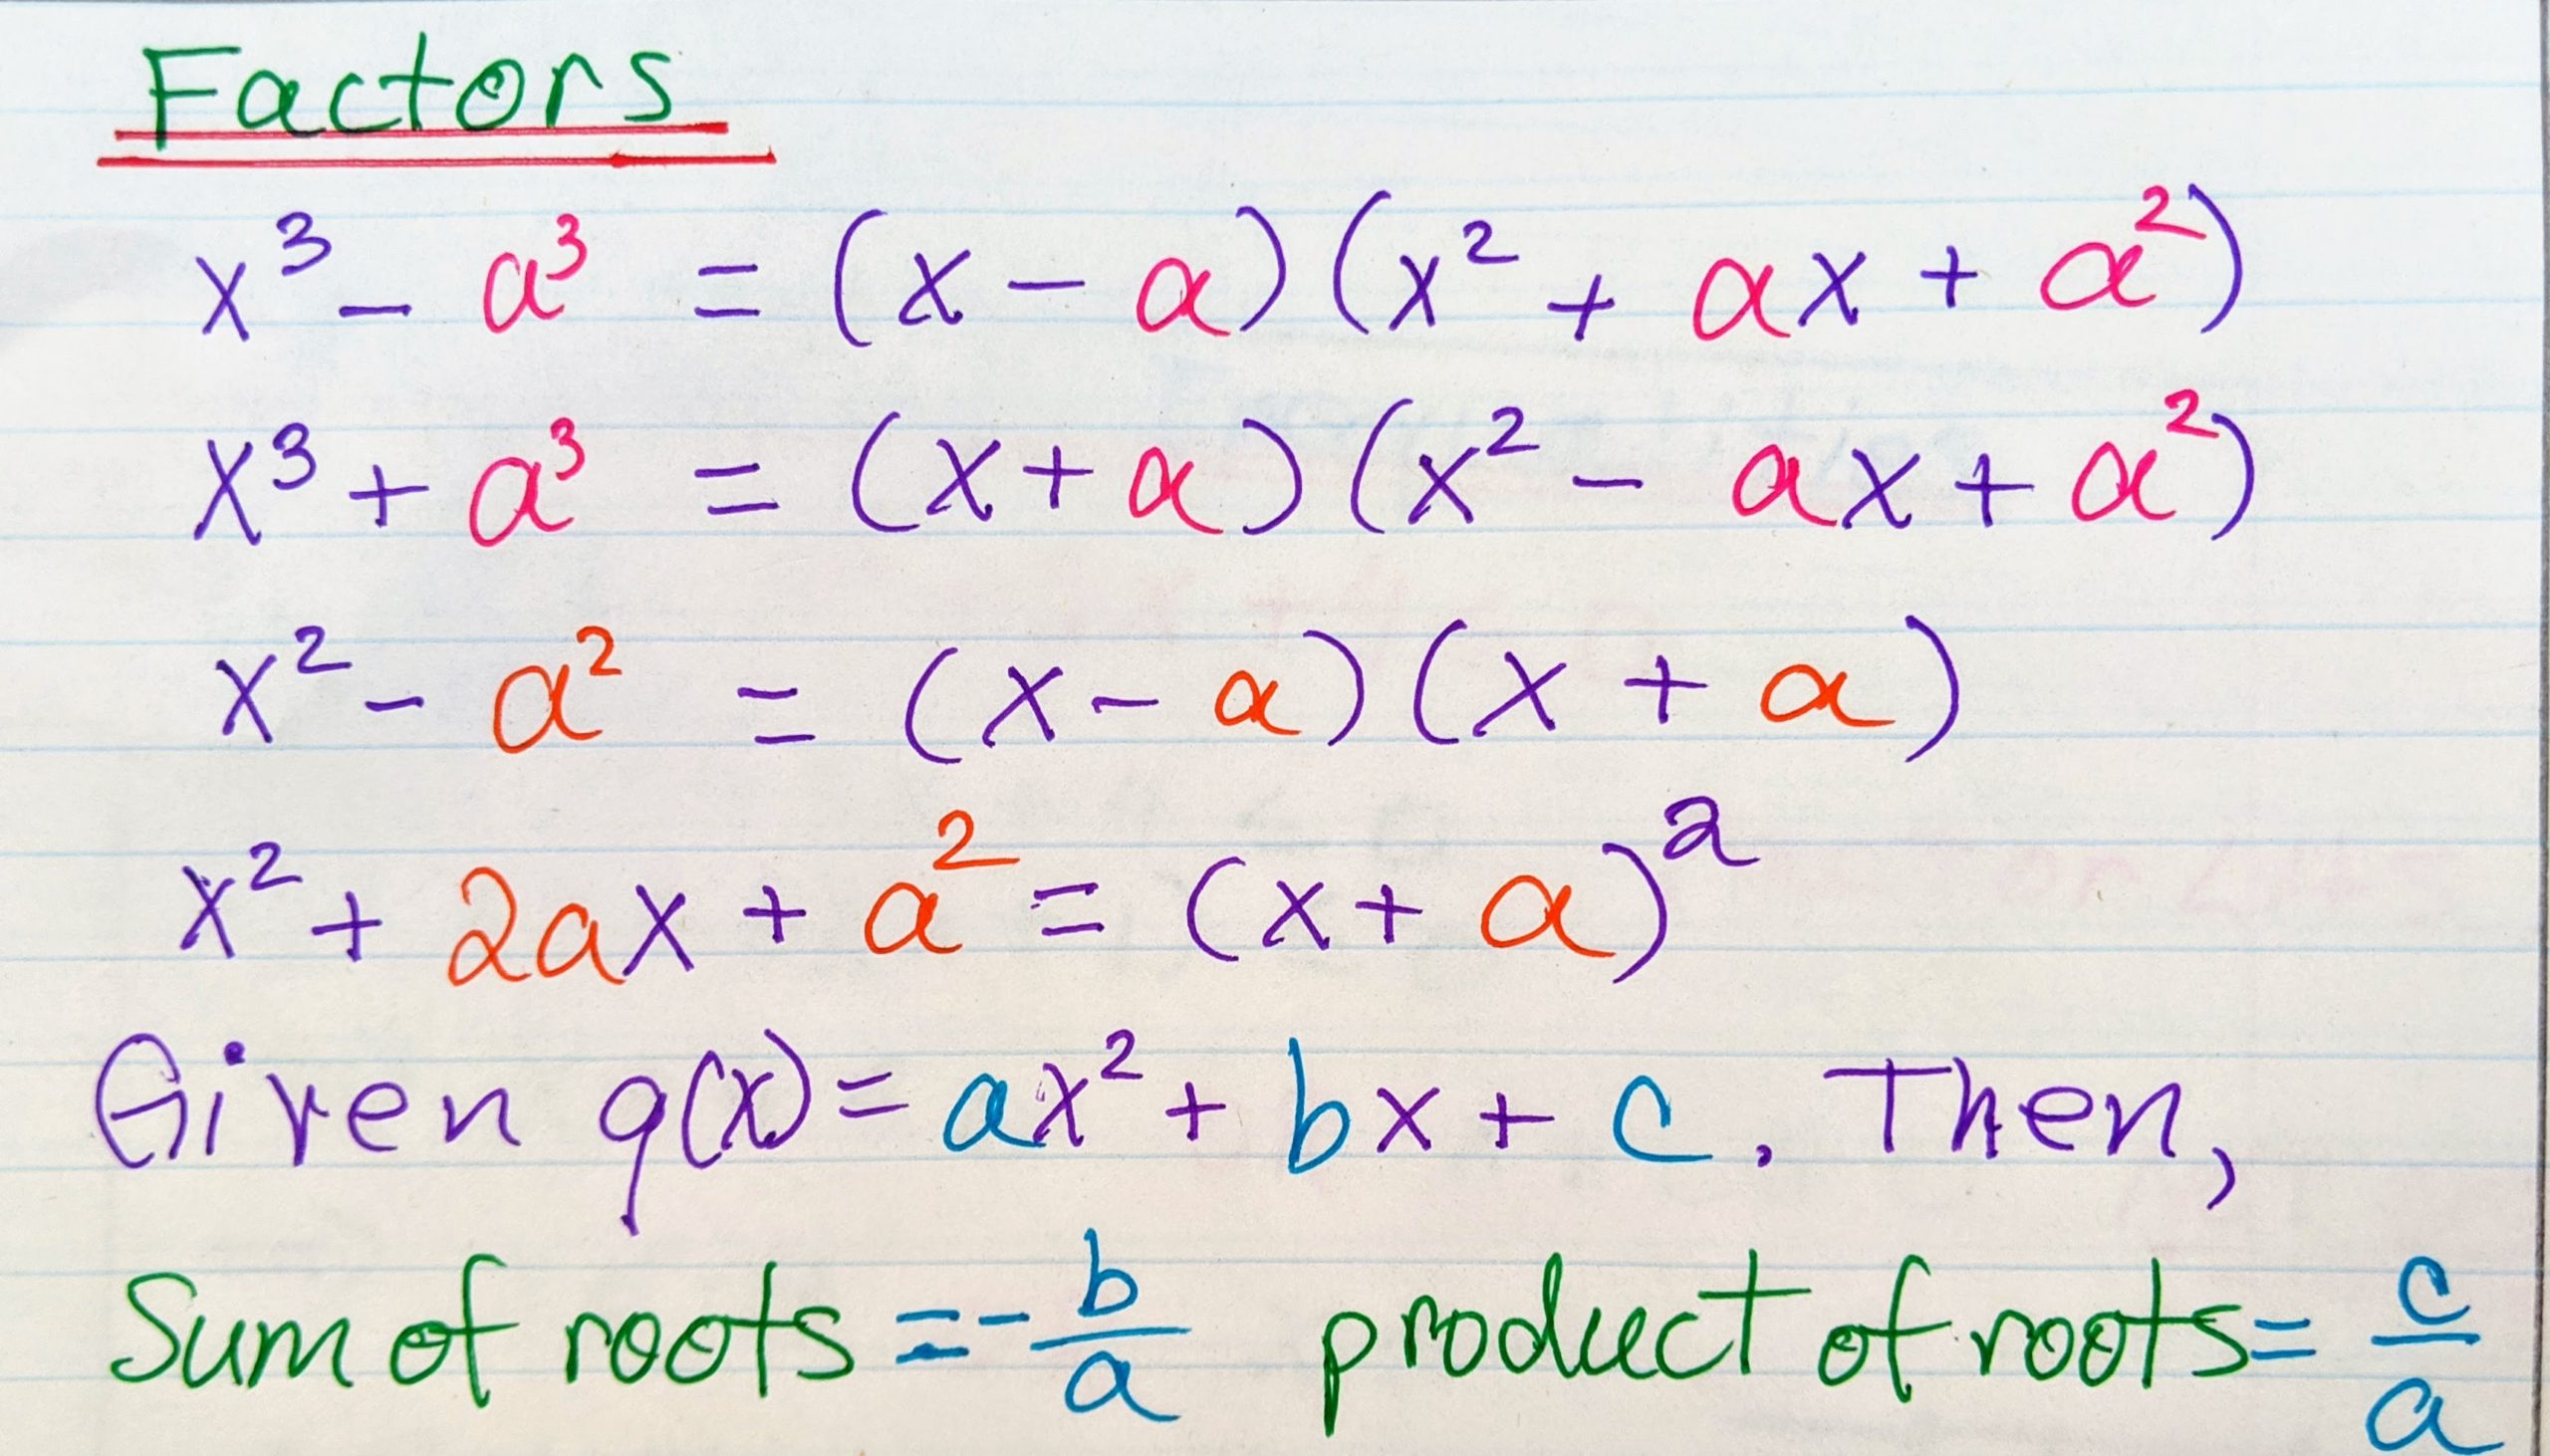 Factors
x³ - a³ = (x - a)(x² + ax + a²)
x³ + a³ = (x + a)(x² - ax + a²)
x² - a² = (x - a)(x + a)
x² + 2ax + a² = (x + a)²
Given q(x) = ax² + bx + c. Then,
Sum of roots = - b/a product of roots = c/a